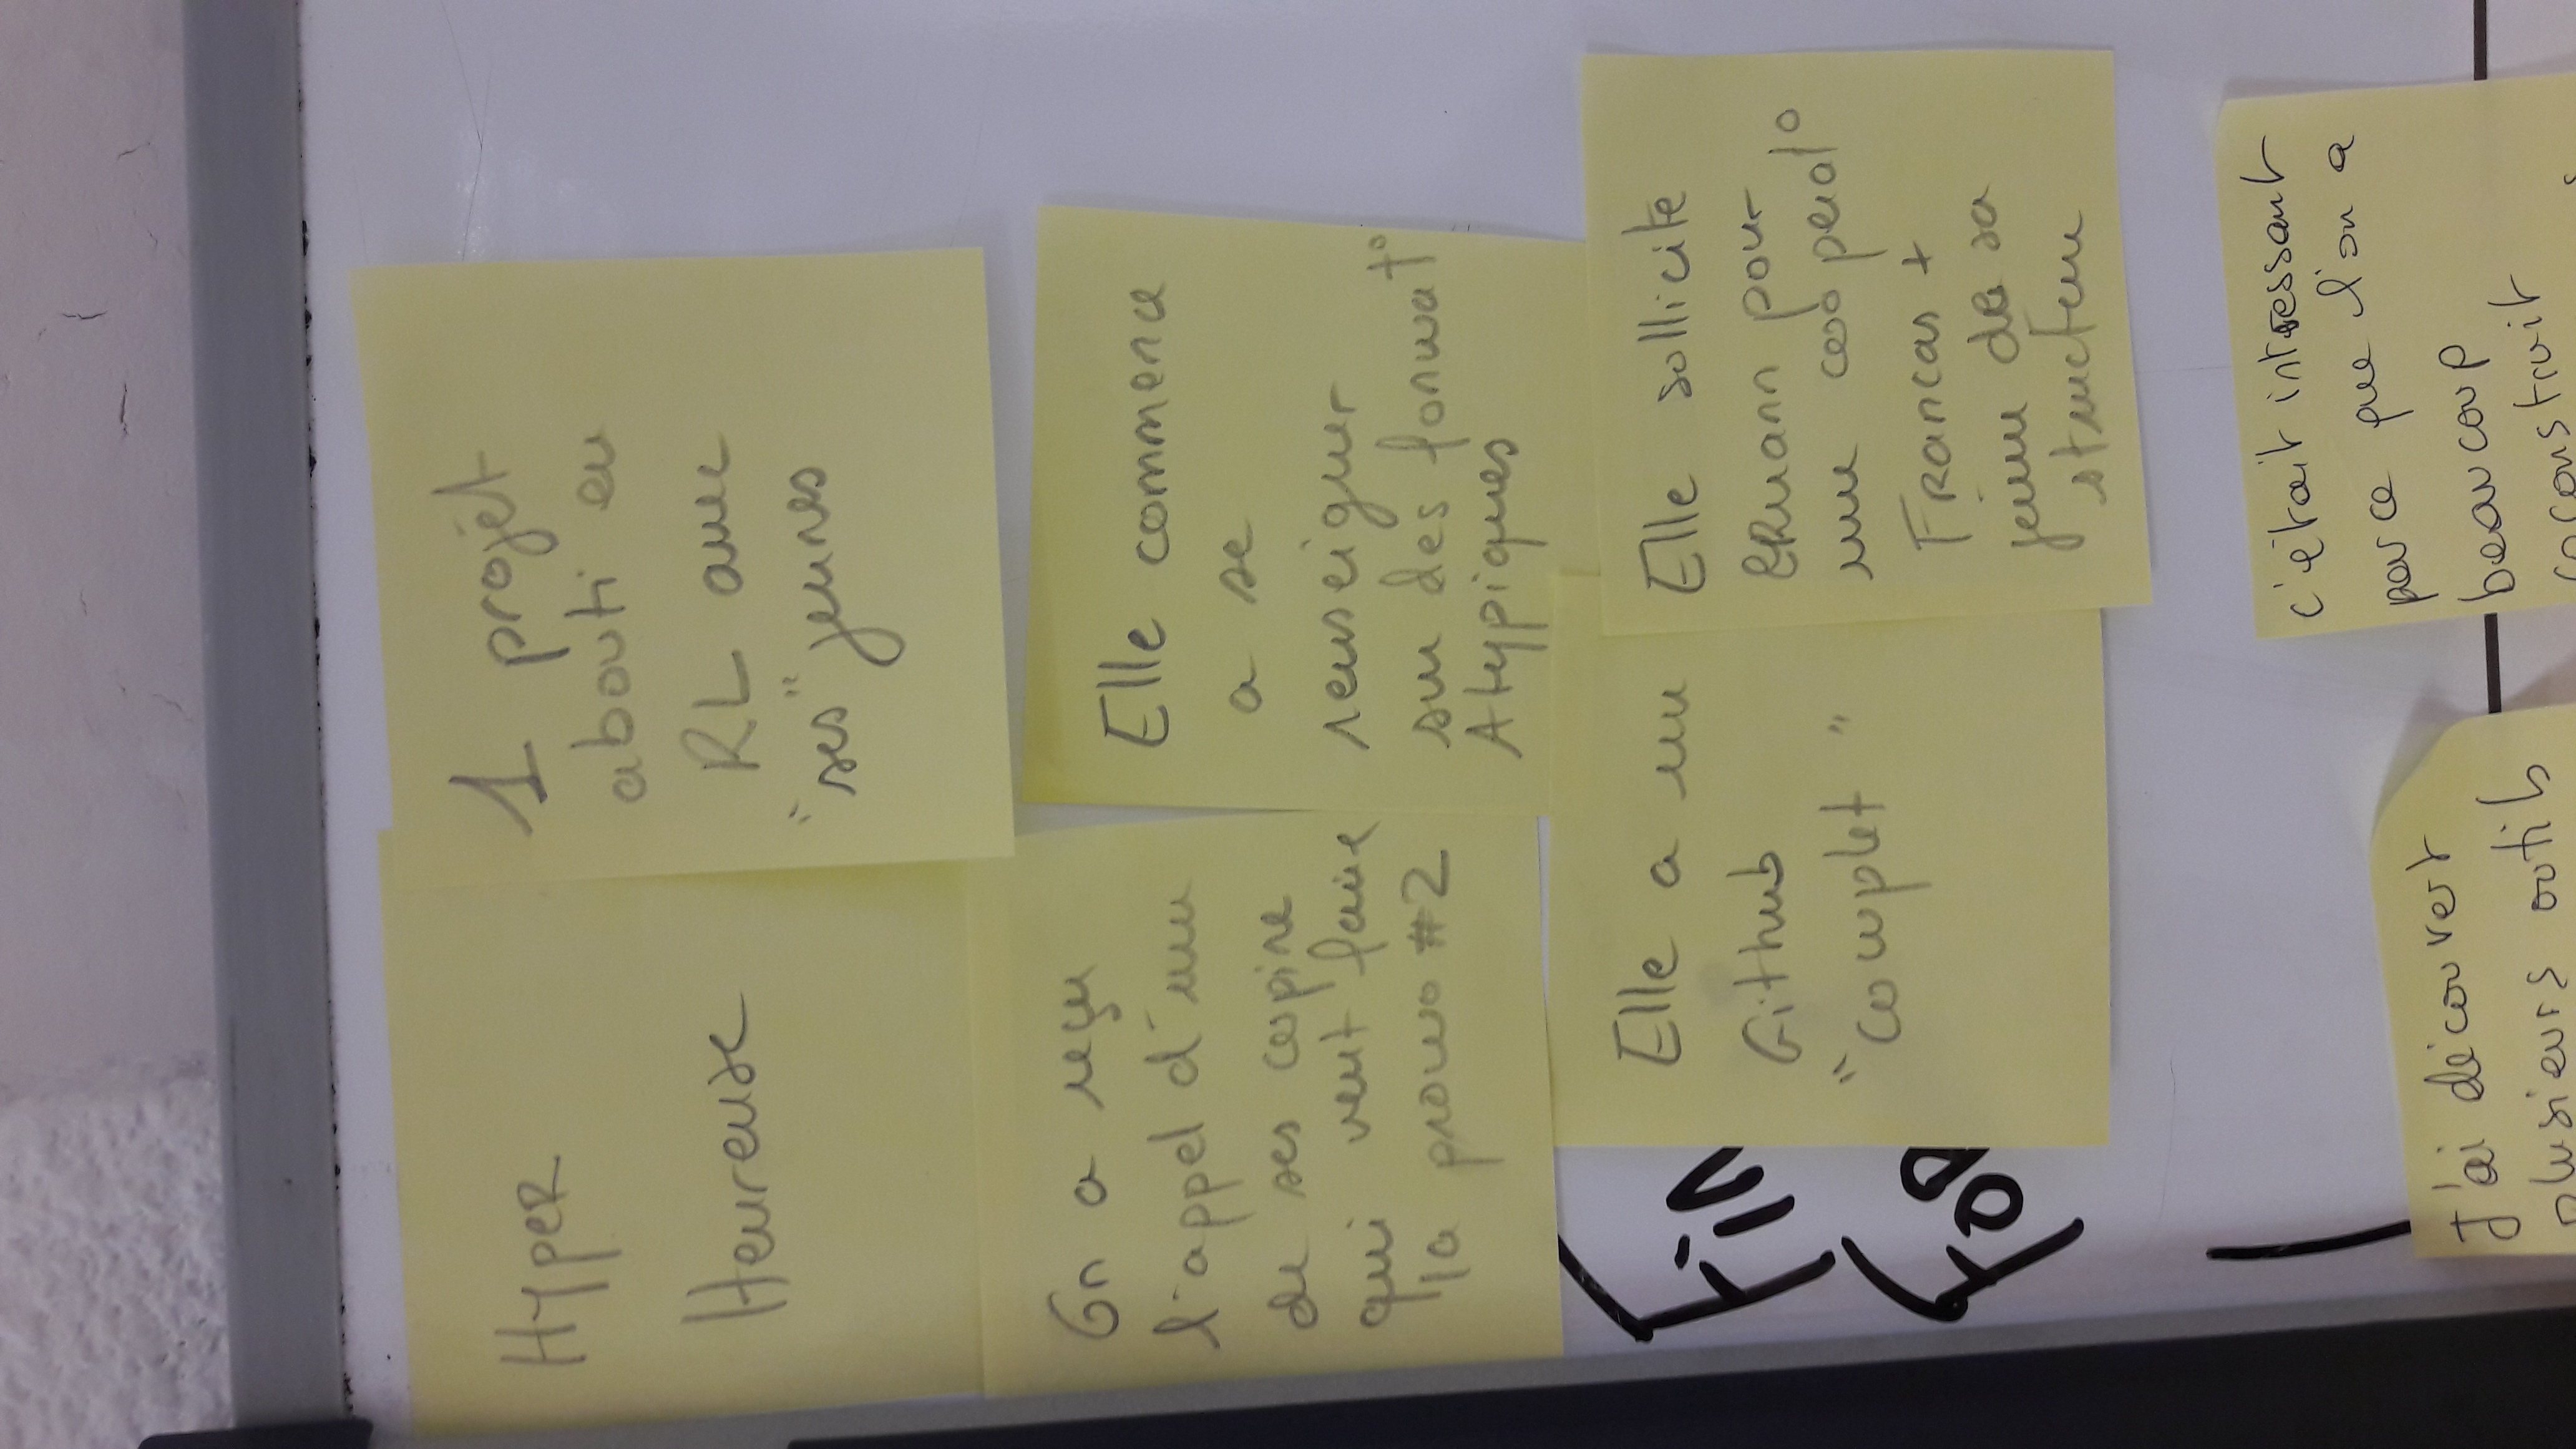 Hyper
Heureuse
1 projet
abouti en
RL avec
"ses" jeunes
On a reçu
l'appel d'un
de ses copine
qui veut faire
la promo #2
Elle commence
a se
renseigner
sur des format°
Atypiques
Fin
FOR
Elle a un
Github
"complet"
Elle sollicite
ERwann pour
une coopérat°
Francas +
jeune de sa
structure
c'était intressant
parce que l'on a
beaucoup
coconstruit
J'ai découvert
plusieurs outils